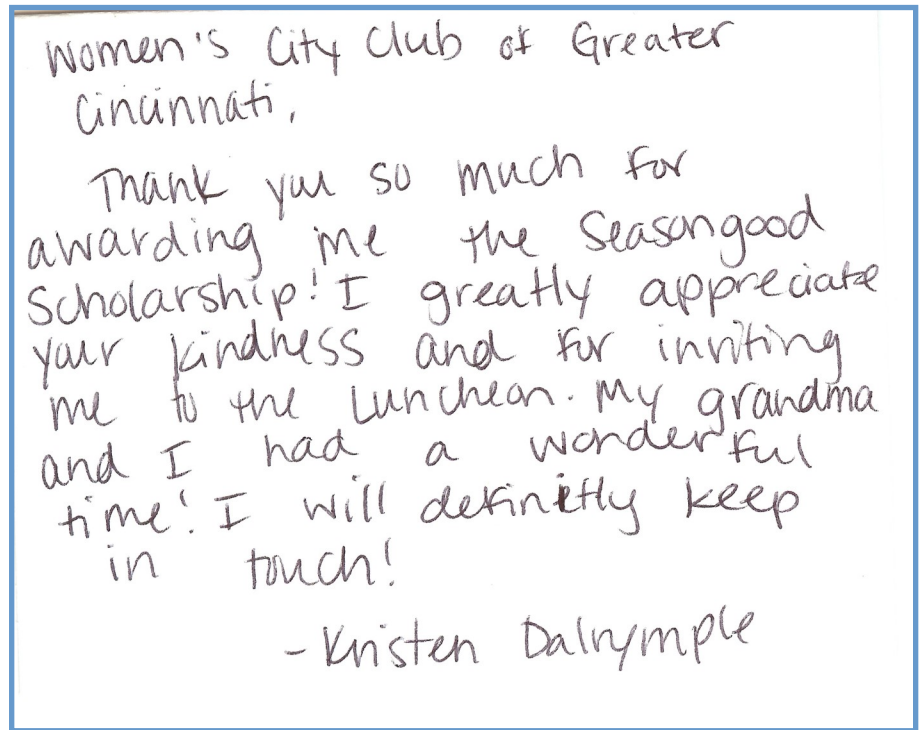 Women's City Club of Greater
Cincinnati,
Thank you so much for
awarding me the Seasongood
Scholarship! I greatly appreciate
your kindness and for inviting
me to the Luncheon. My grandma
and I had a wonderful
time! I will definitly keep
in touch!
-Kristen Dalrymple